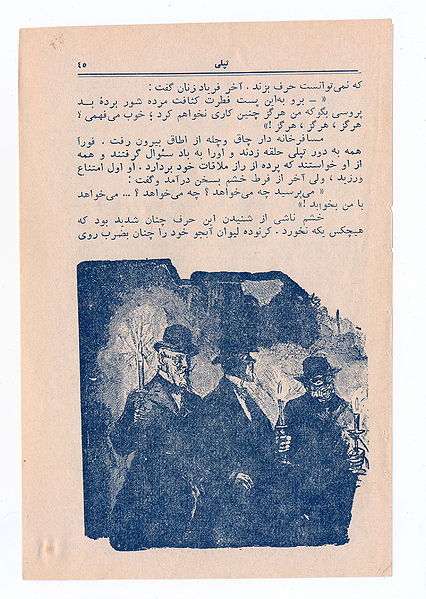 تپلی ٤٥
که نمی‌توانست حرف بزند . آخر فریاد زنان گفت :
« ــ برو به‌این پست فطرت کثافت مرده شور بردهٔ بـد
پروسی بگوکه من هرگز چنین کاری نخواهم کرد ؛ خوب می‌فهمی ؟
هرگز ، هرگز ، هرگز !»
مسافرخانه دار چاق وچله از اطاق بیرون رفت . فوراً
همه به دور تپلی حلقه زدند و اورا به باد سئوال گرفتند و همه
از او خواستند که پرده از راز ملاقات خود بردارد . او اول امتناع
ورزید ، ولی آخر از فرط خشم بسخن درآمد وگفت :
« می‌پرسید چه می‌خواهد ؟ چه می‌خواهد ؟ ... می‌خواهد
با من بخوابد !»
خشم ناشی از شنیدن این حرف چنان شدید بود که
هیچکس یکه نخورد . کرنوده لیوان آبجو خود را چنان بضرب روی